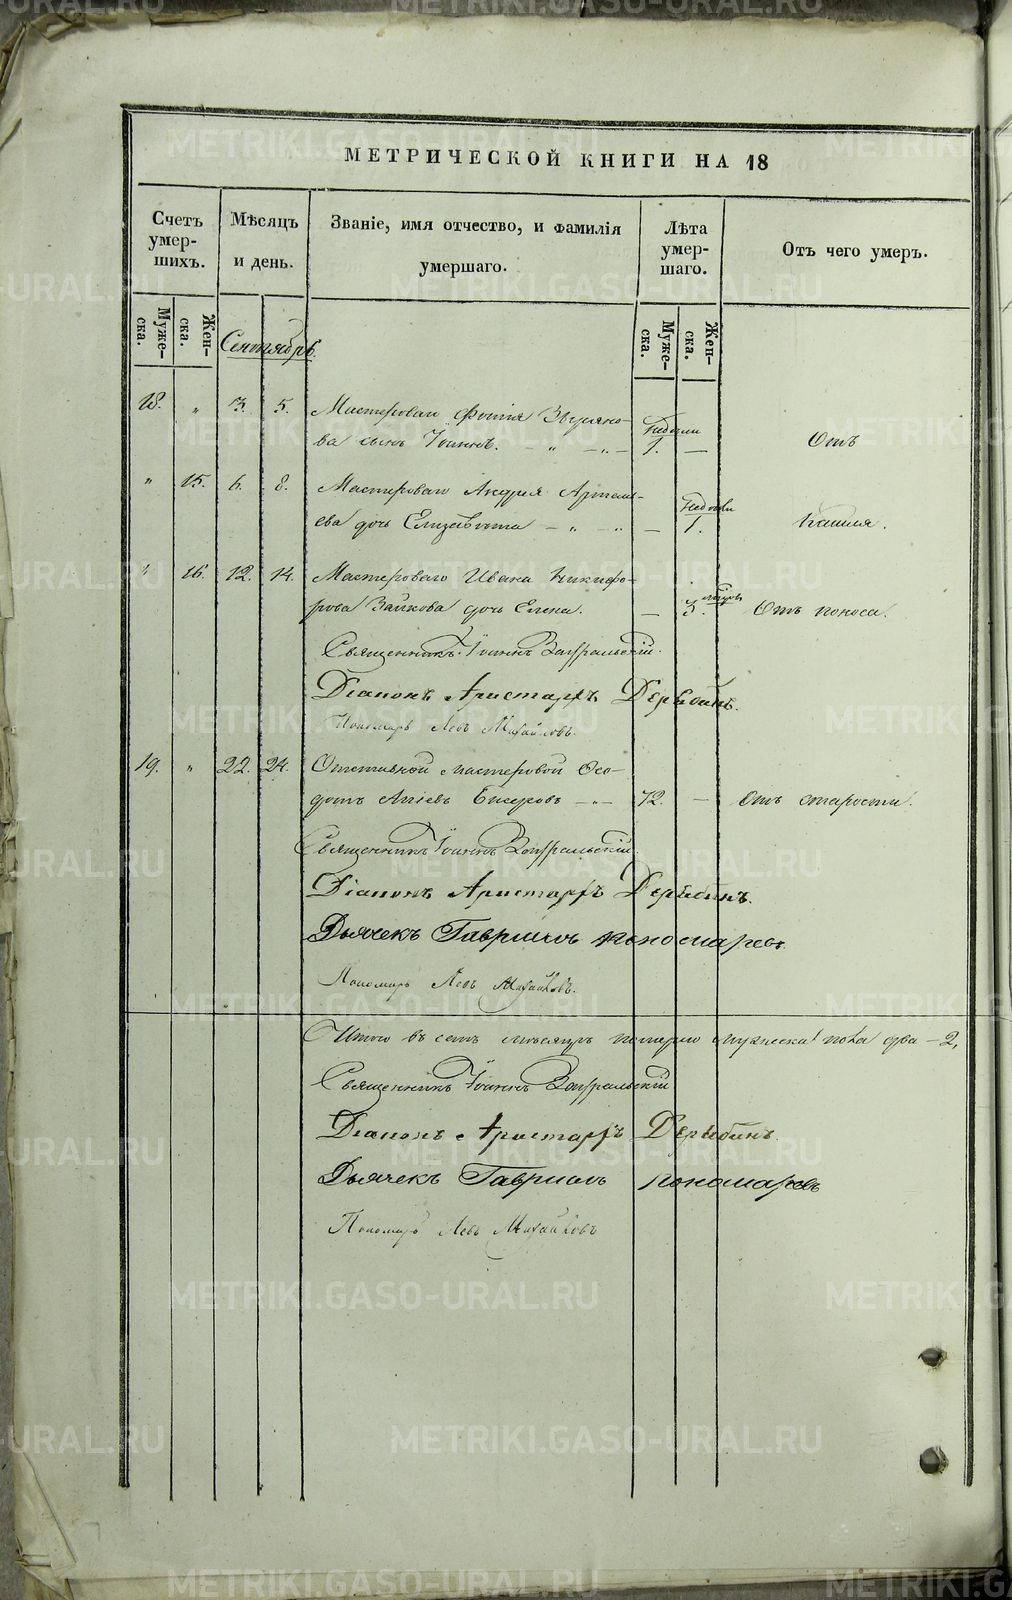 МЕТРИЧЕСКОЙ КНИГИ НА 18
Счетъ умершихъ.
Мѣсяцъ и день.
Званіе, имя отчество, и фамилія умершаго.
Лѣта умершаго.
Отъ чего умеръ.
Мужеска.
Женска.
Мужеска.
Женска.
Сентябрь.
18. " 3. 5. Мастероваго Фотія Звѣряко-
ва сынъ Іоаннъ. — " — " — Недѣли 1. — Отъ
" 15. 6. 8. Мастероваго Андрея Артемь-
ева дочь Елизавета — " — " — Недѣли 1. Кашля.
" 16. 12. 14. Мастероваго Ивана Никифо-
рова Зайкова дочь Елена. — Отъ поноса.
Священникъ Іоаннъ
Діаконъ Аристархъ Дерябинъ.
Пономарь Левъ Михайловъ.
19. " 22. 24. Отставной мастеровой Ѳео-
дотъ — " — 72. — Отъ старости.
Священникъ Іоаннъ
Діаконъ Аристархъ Дерябинъ.
Дьячекъ Гавриилъ Пономаревъ.
Пономарь Левъ Михайловъ.
Итого въ семъ мѣсяцѣ померло мужеска пола два — 2,
Священникъ Іоаннъ
Діаконъ Аристархъ Дерябинъ.
Дьячекъ Гавриилъ Пономаревъ
Пономарь Левъ Михайловъ
METRIKI.GASO-URAL.RU